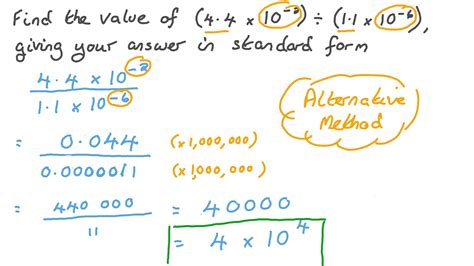 Find the value of (4.4 × 10⁻²) ÷ (1.1 × 10⁻⁶),
giving your answer in standard form
4.4 × 10⁻²
1.1 × 10⁻⁶
Alternative
Method
= 0.044 (×1,000,000)
0.0000011 (×1,000,000)
= 440 000 = 40000
11
= 4 × 10⁴